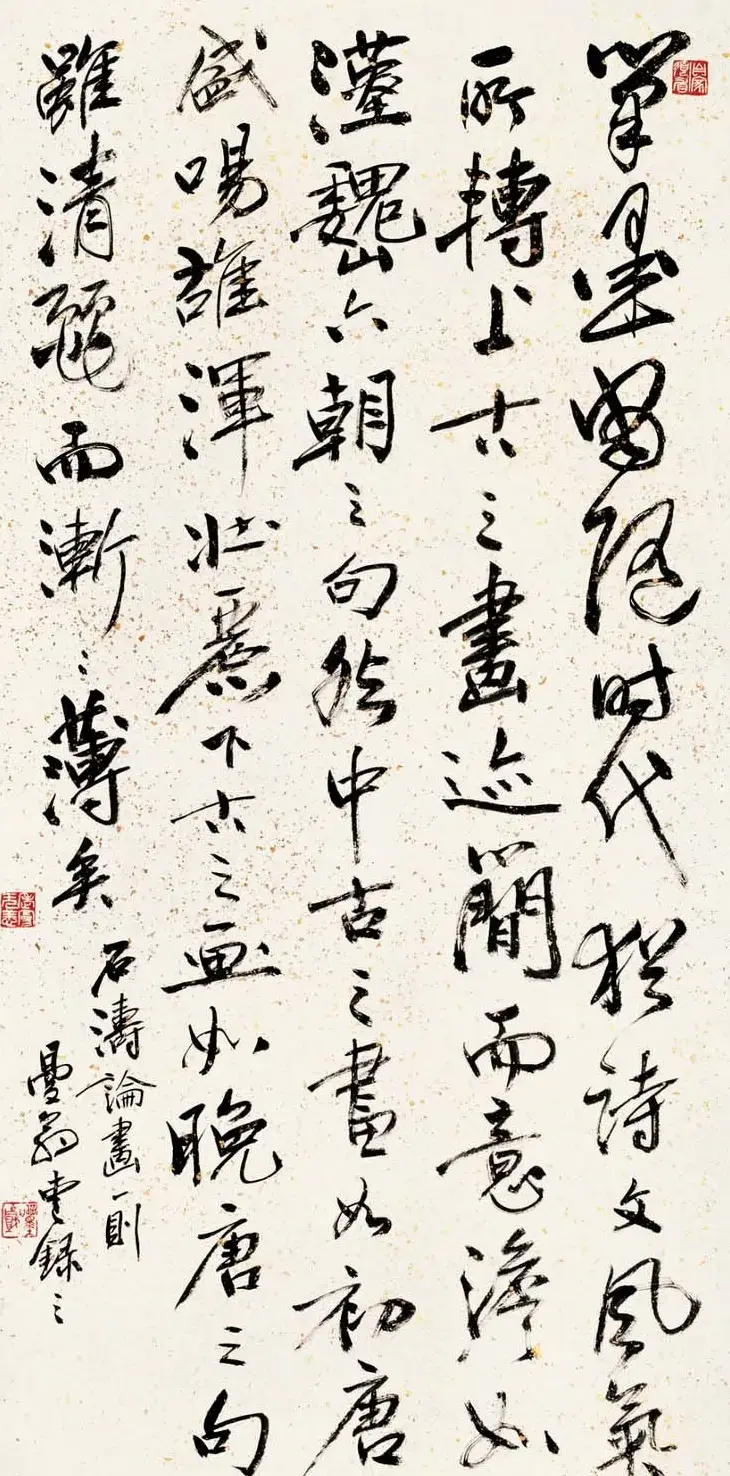 筆墨當隨时代猶詩文風氣
所轉上古之畫迹簡而意澹如
漢魏六朝之句然中古之畫如初唐
盛啺雄渾壯麗下古之画如晚唐之句
雖清麗而漸〻薄矣
石濤論畫一則
曼翁書録之